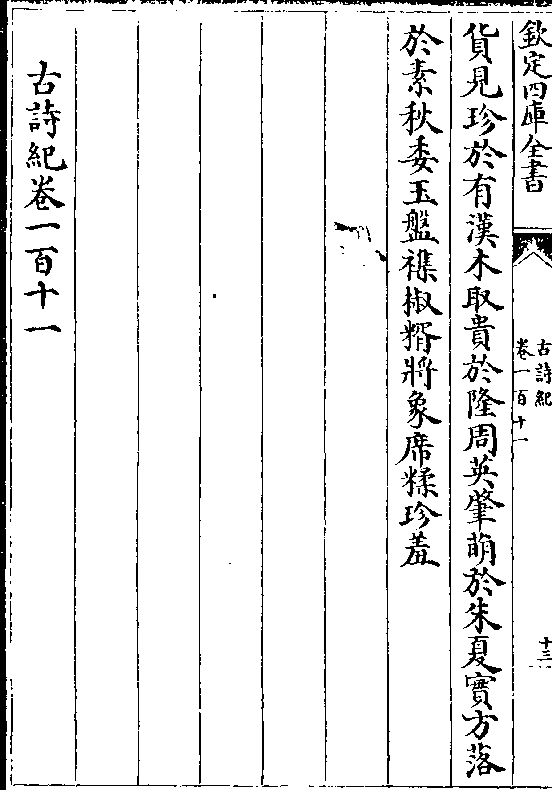 欽定四庫全書
古詩紀
卷一百十一
十三
貨見珍於有漢木取貴於隆周英肇萌於朱夏實方落
於素秋委玉盤褋椒糈將象席糅珍羞
古詩紀卷一百十一